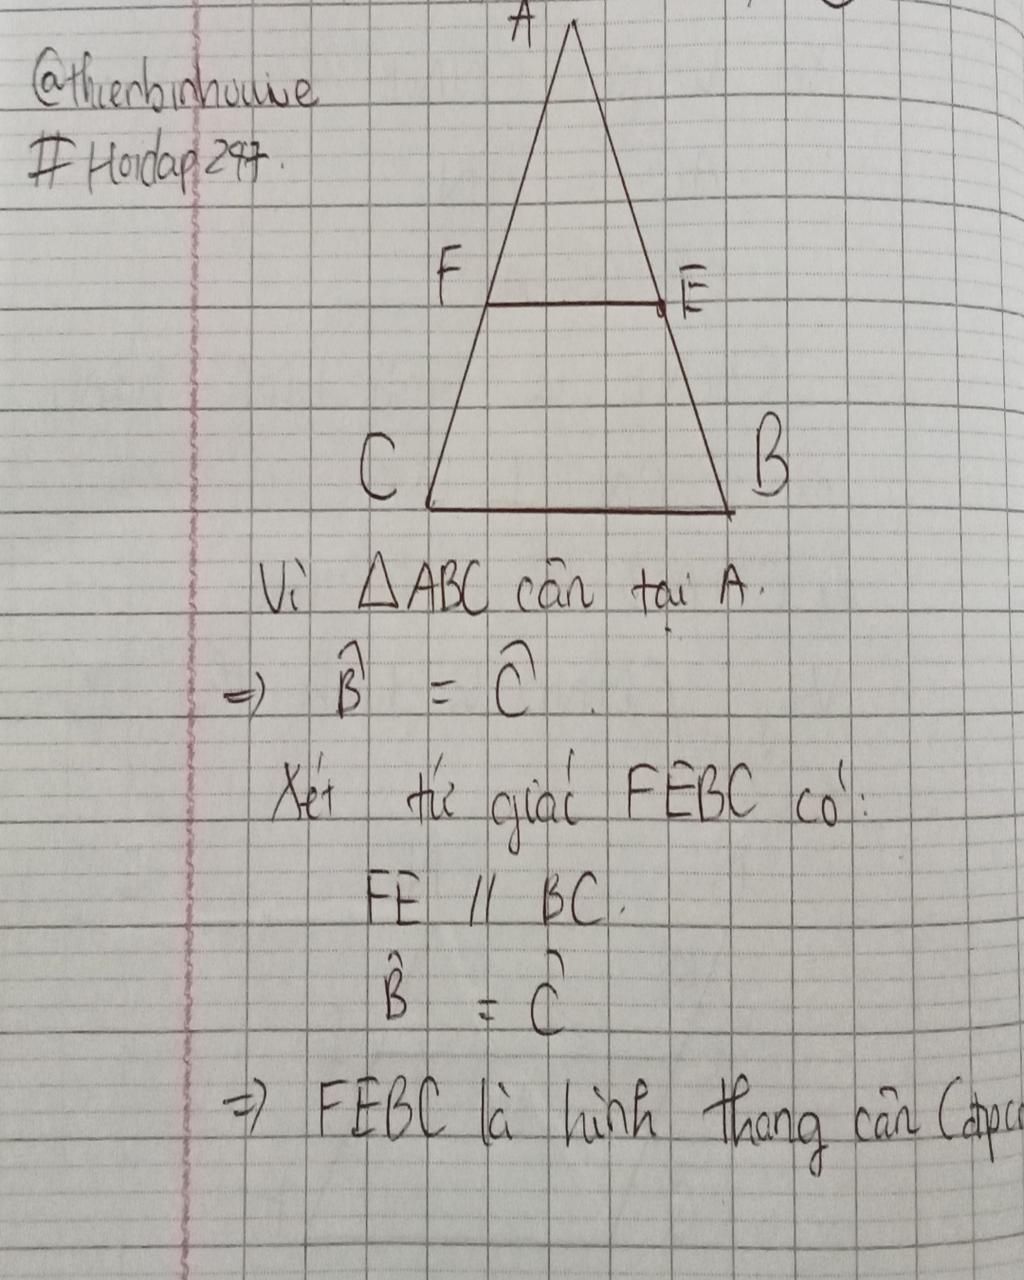 @thienbinhouwe
#Hoidap247.
A
F
E
C
B
Vì △ABC cân tại A.
=> B̂ = Ĉ.
Xét tứ giác FEBC có:
FE // BC.
B̂ = Ĉ
=> FEBC là hình thang cân (đpc